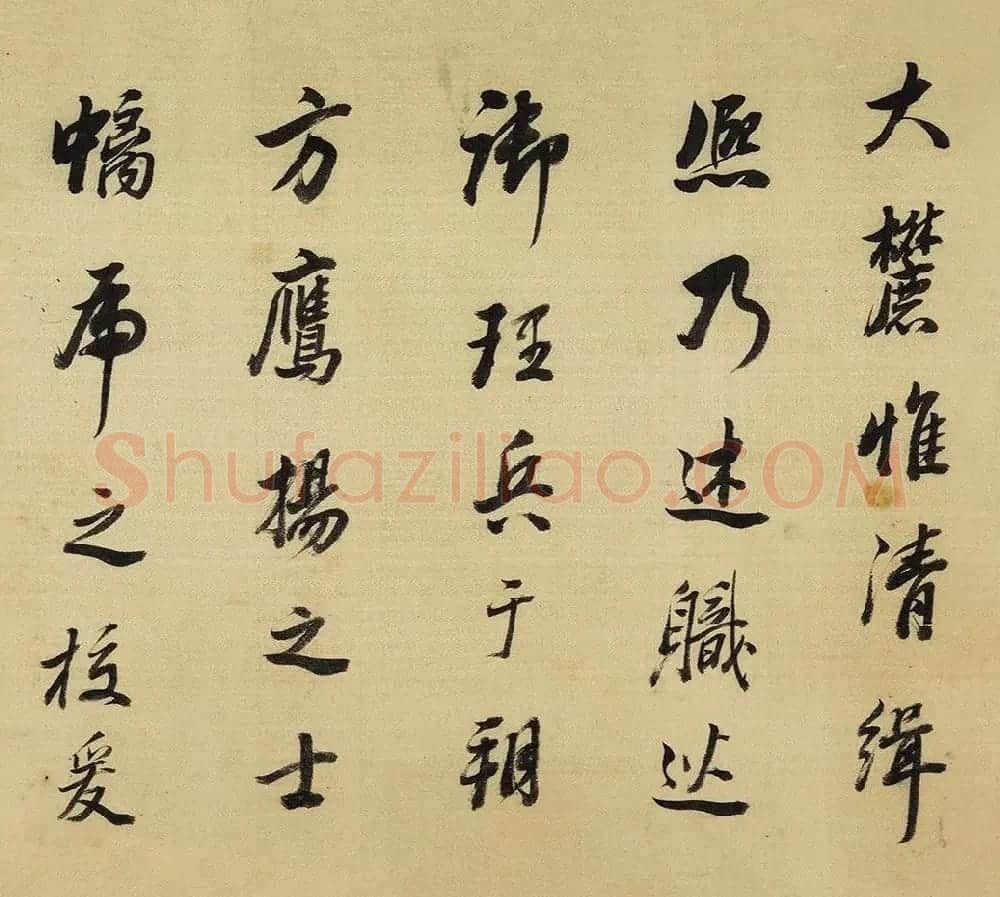 大麓惟清緝
熙乃述職巡
御理兵于朔
方鷹揚之士
螭虎之校爰
Shufaziliao.COM